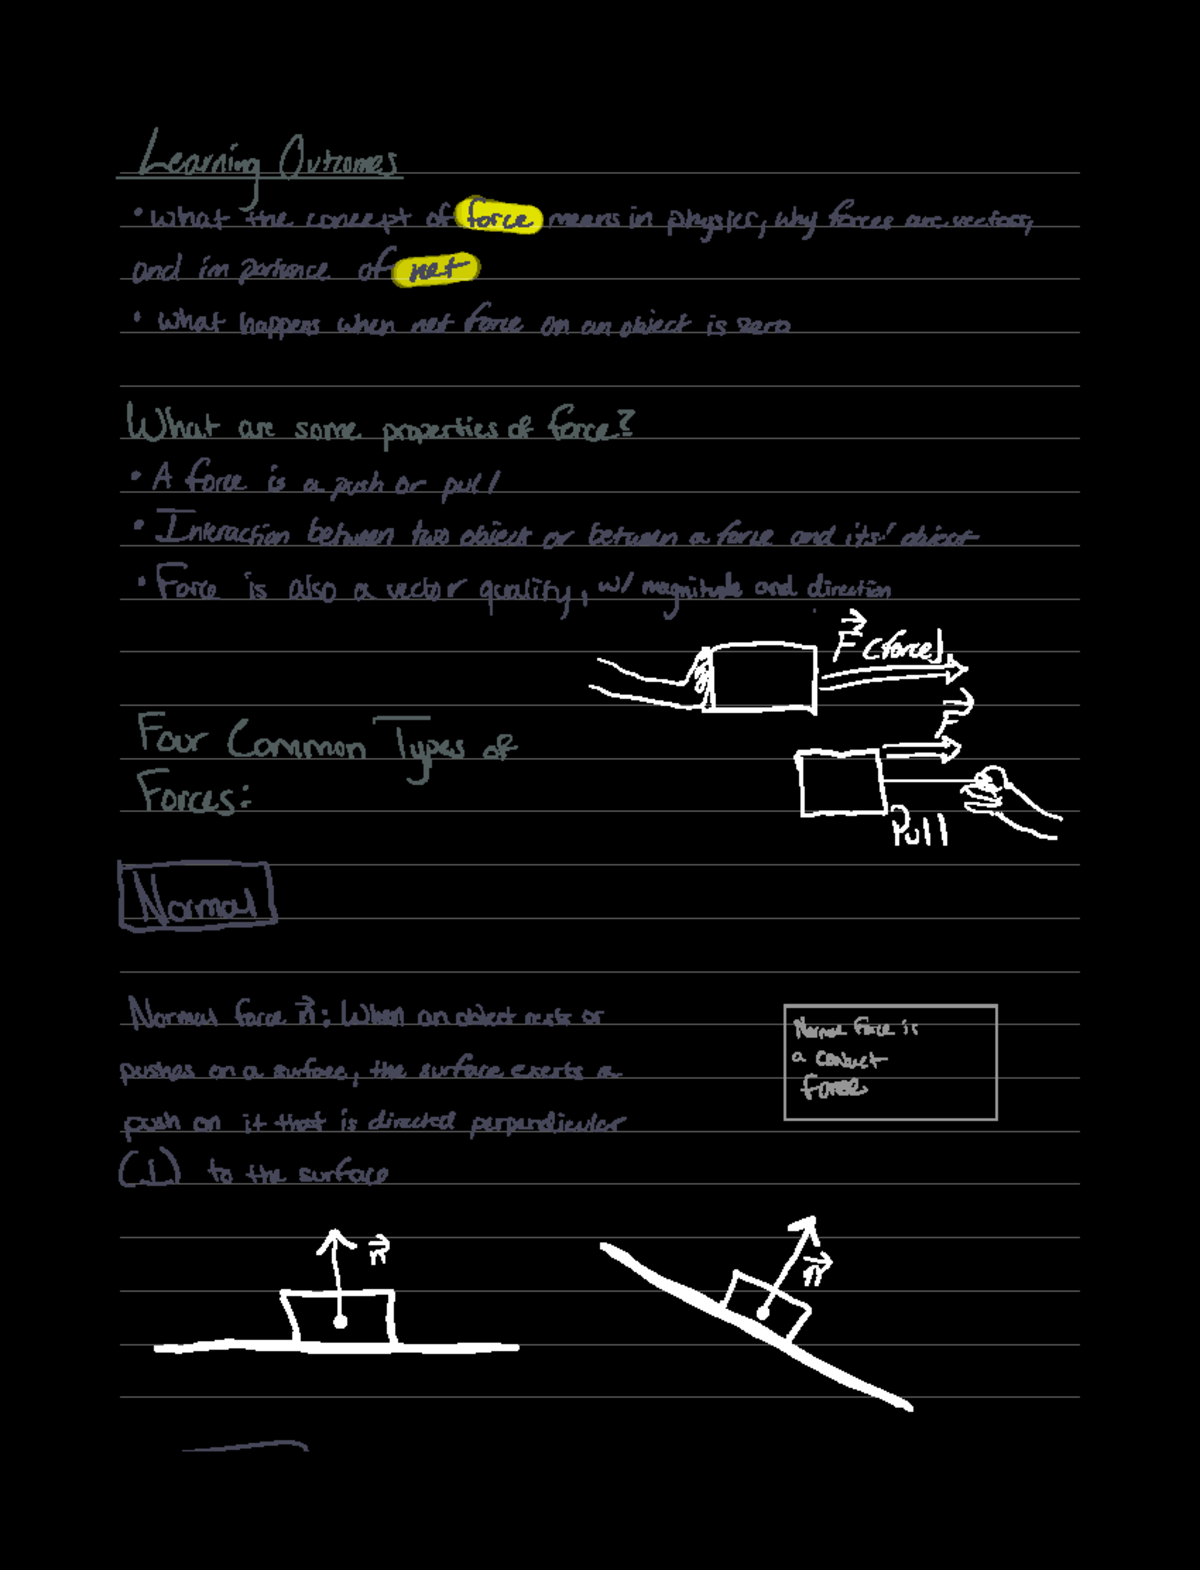 Learning Outcomes
• What the concept of force means in physics, why forces are vectors,
and importance of net
• What happens when net force on an object is zero
What are some properties of force?
• A force is a push or pull
• Interaction between two object or between a force and its' object
• Force is also a vector quality, w/ magnitude and direction
F (force)
F
Four Common Types of
Forces:
Pull
Normal
Normal force n: When an object rests or
pushes on a surface, the surface exerts a
push on it that is directed perpendicular
(⊥) to the surface
Normal Force is
a contact
force
n
n